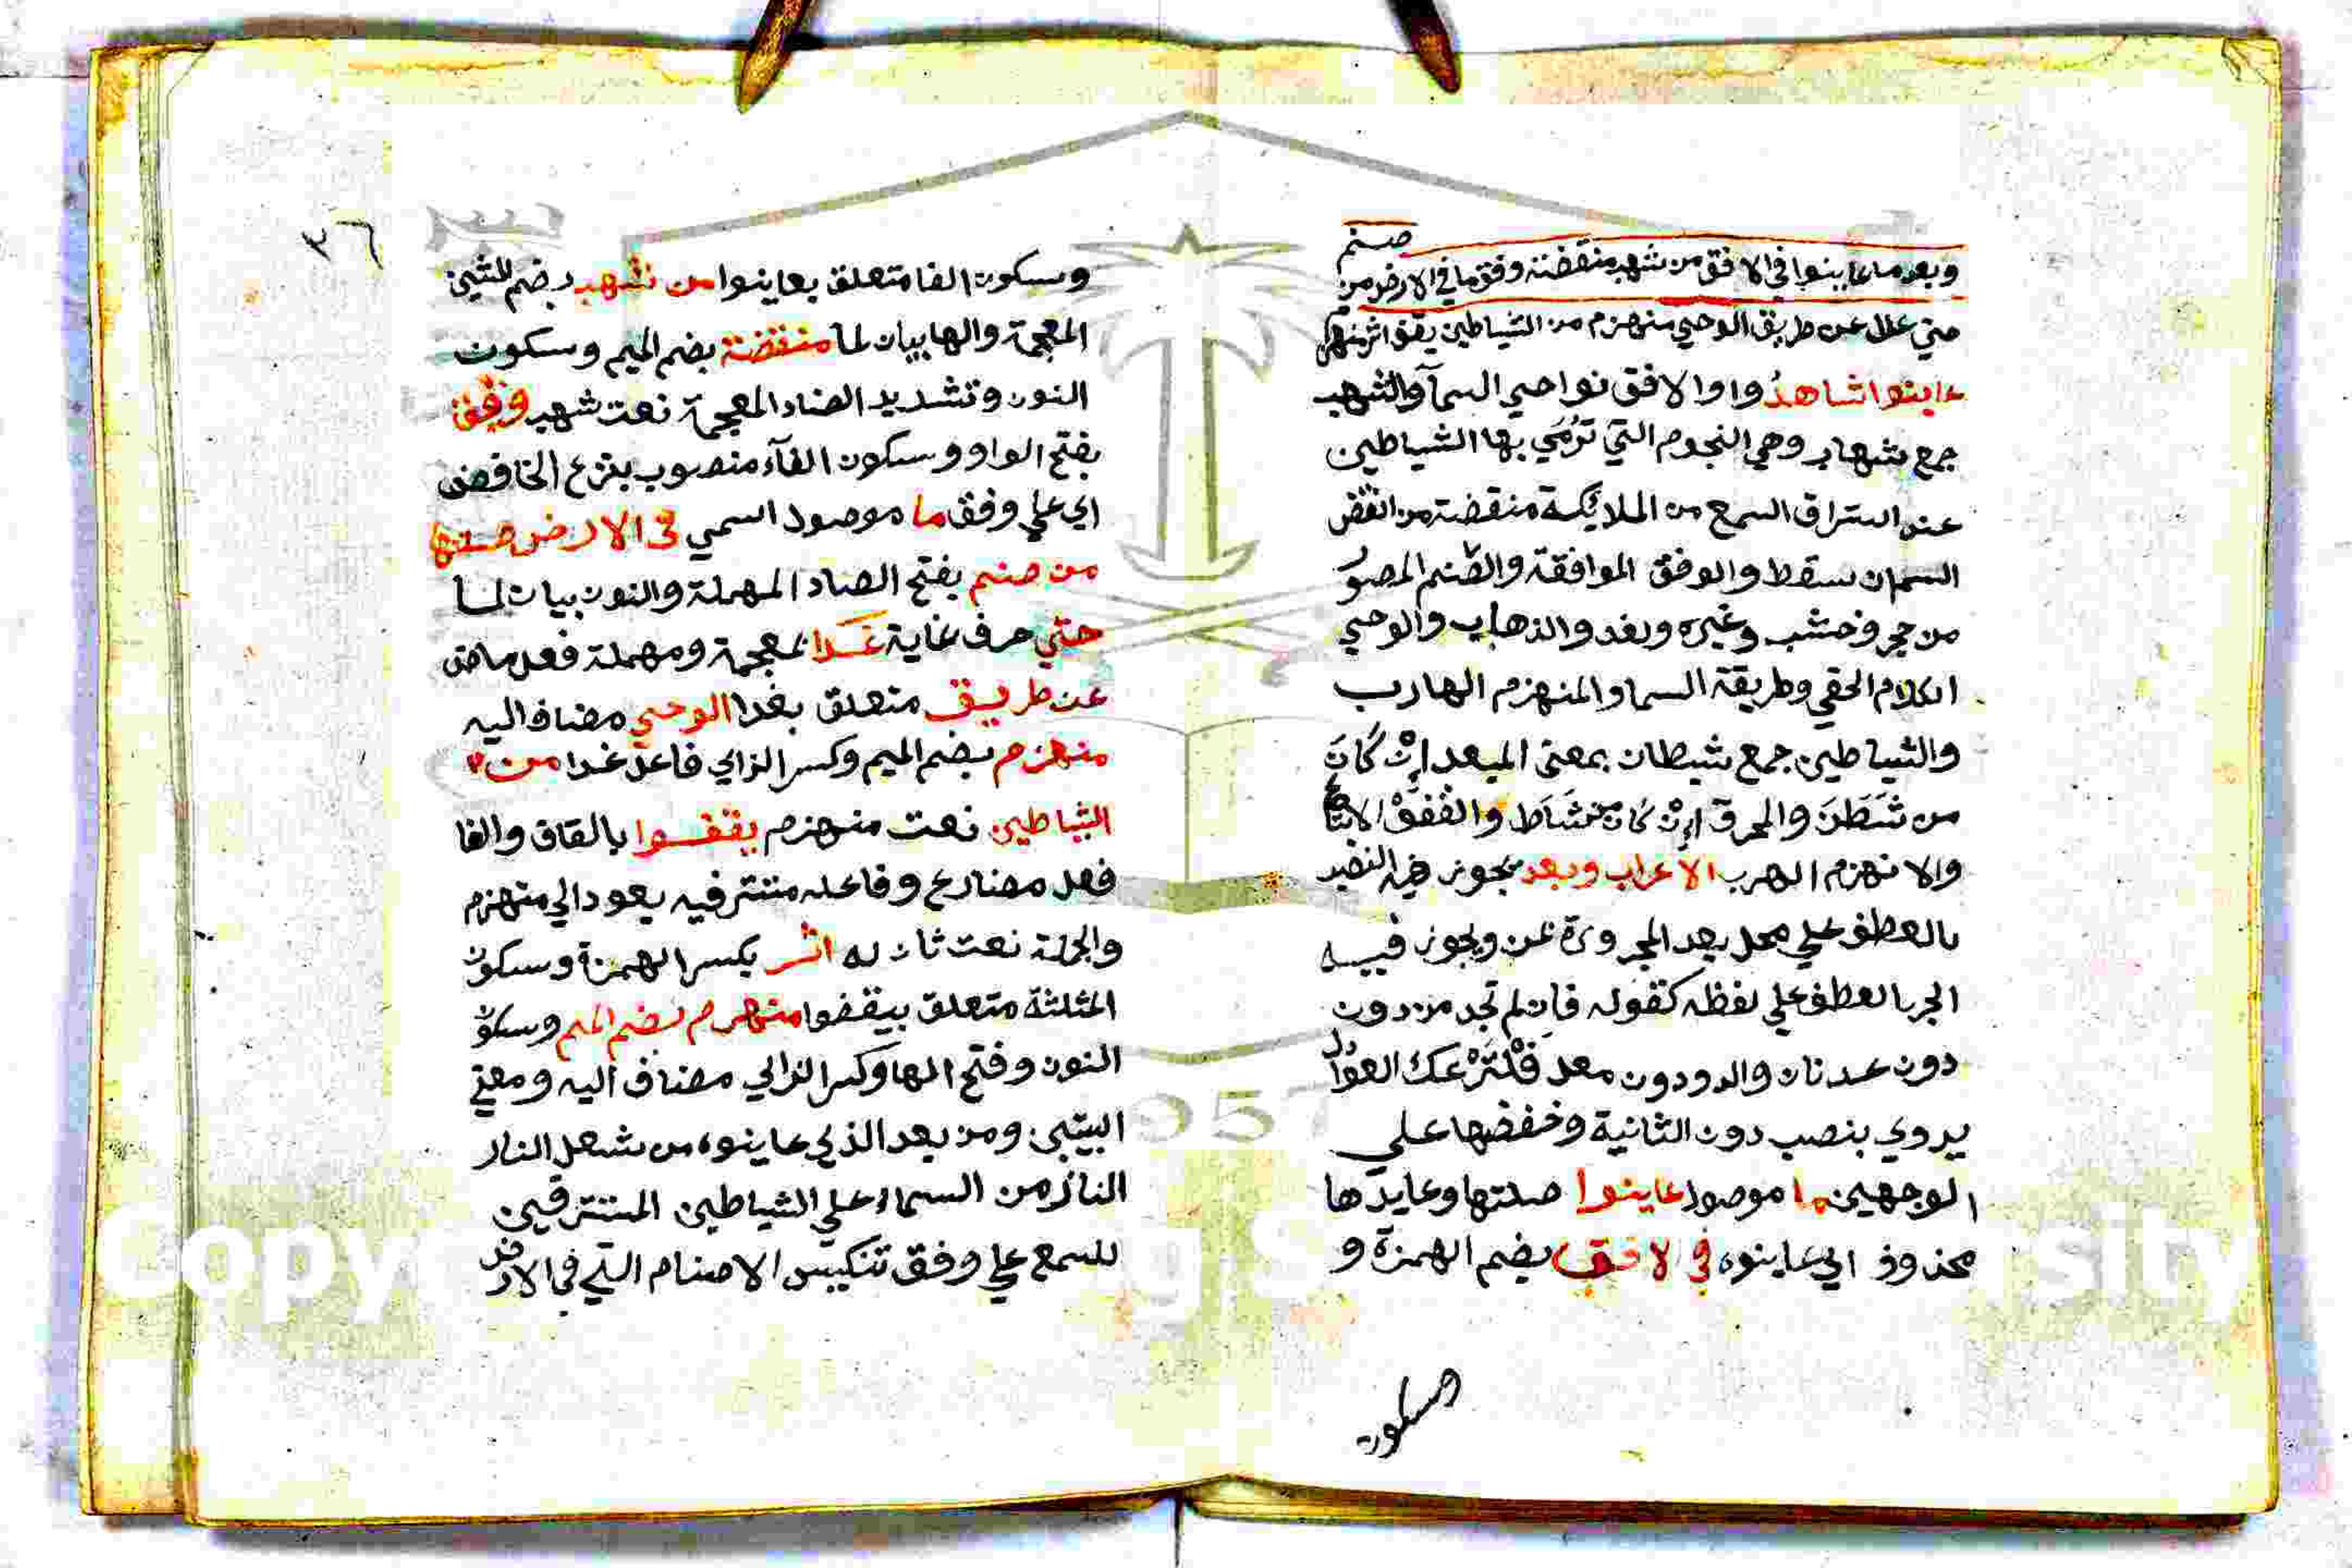 صنم
وبعد ما عاينوا في الافق من شهب منقضة وفق ما في الارض من
حتي غدا عن طريق الوحي منهزم من الشياطين يقفوا اثر منهزم
عاينوا شاهدُ واوا لافق نواحي السمآ والشهب
جمع شهاب وهي النجوم التي تُرمَي بها الشياطين
عند استراق السمع من الملايكة منقضة من انقض
السمان سقط والوفق الموافقة والصنم المصوّ
من حجر وخشب وغيره وبغد والذهاب والوحي
الكلام الحقي وطريقة السما والمنهزم الهارب
والشياطين جمع شيطان بمعنى المبعد اِنْ كَانَ
من شَطَنَ والمحرق اِنْ كان من شَاطَ والقفوْ الاتباع
والانهزم الهرب الاعراب وبعد يجوز فيه النصب
بالعطف علي محل بعد المجرورة بمن ويجوز فيه
الجر بالعطف علي لفظه كقوله فان لم تجد من دون
دون عدنان والدودون معد فلْتَزَعْك العوادل
يروي بنصب دون الثانية وخفضها علي
الوجهين ما موصول عاينوا صلتها وعايدها
محذوف اي عاينوه في لافق بضم الهمزة و
وسكون
٣٦
وسكون الفا متعلق بعاينوا من شهب بضم الشين
المعجمة والها بيان لما منقضة بضم الميم وسكون
النون وتشديد الضاد المعجمة نعت شهب وفق
بفتح الواو وسكون الفآء منصوب بنزع الخافض
اي علي وفق ما موصول اسمي في الارض صلتها
من صنم بفتح الصاد المهملة والنون بيان لما
حتي حرف غاية غدا بمعجمة ومهملة فعل ماض
عن طريق متعلق بغدا الوحي مضاف اليه
منهزم بضم الميم وكسر الزاي فاعل غدا من
الشياطين نعت منهزم يقفوا بالقاف والفا
فعل مضارع وفاعله مستتر فيه يعود الي منهزم
والجملة نعت ثان له اثر بكسر الهمزة وسكون
المثلثة متعلق بيقفوا منهزم بضم الميم وسكون
النون وفتح الها وكسر الزاي مضاف اليه ومعني
البيتين ومن بعد الذي عاينوه من شعل النار
النازمن السماء علي الشياطين المسترقين
للسمع علي وفق تنكيس الاصنام التي في الارض